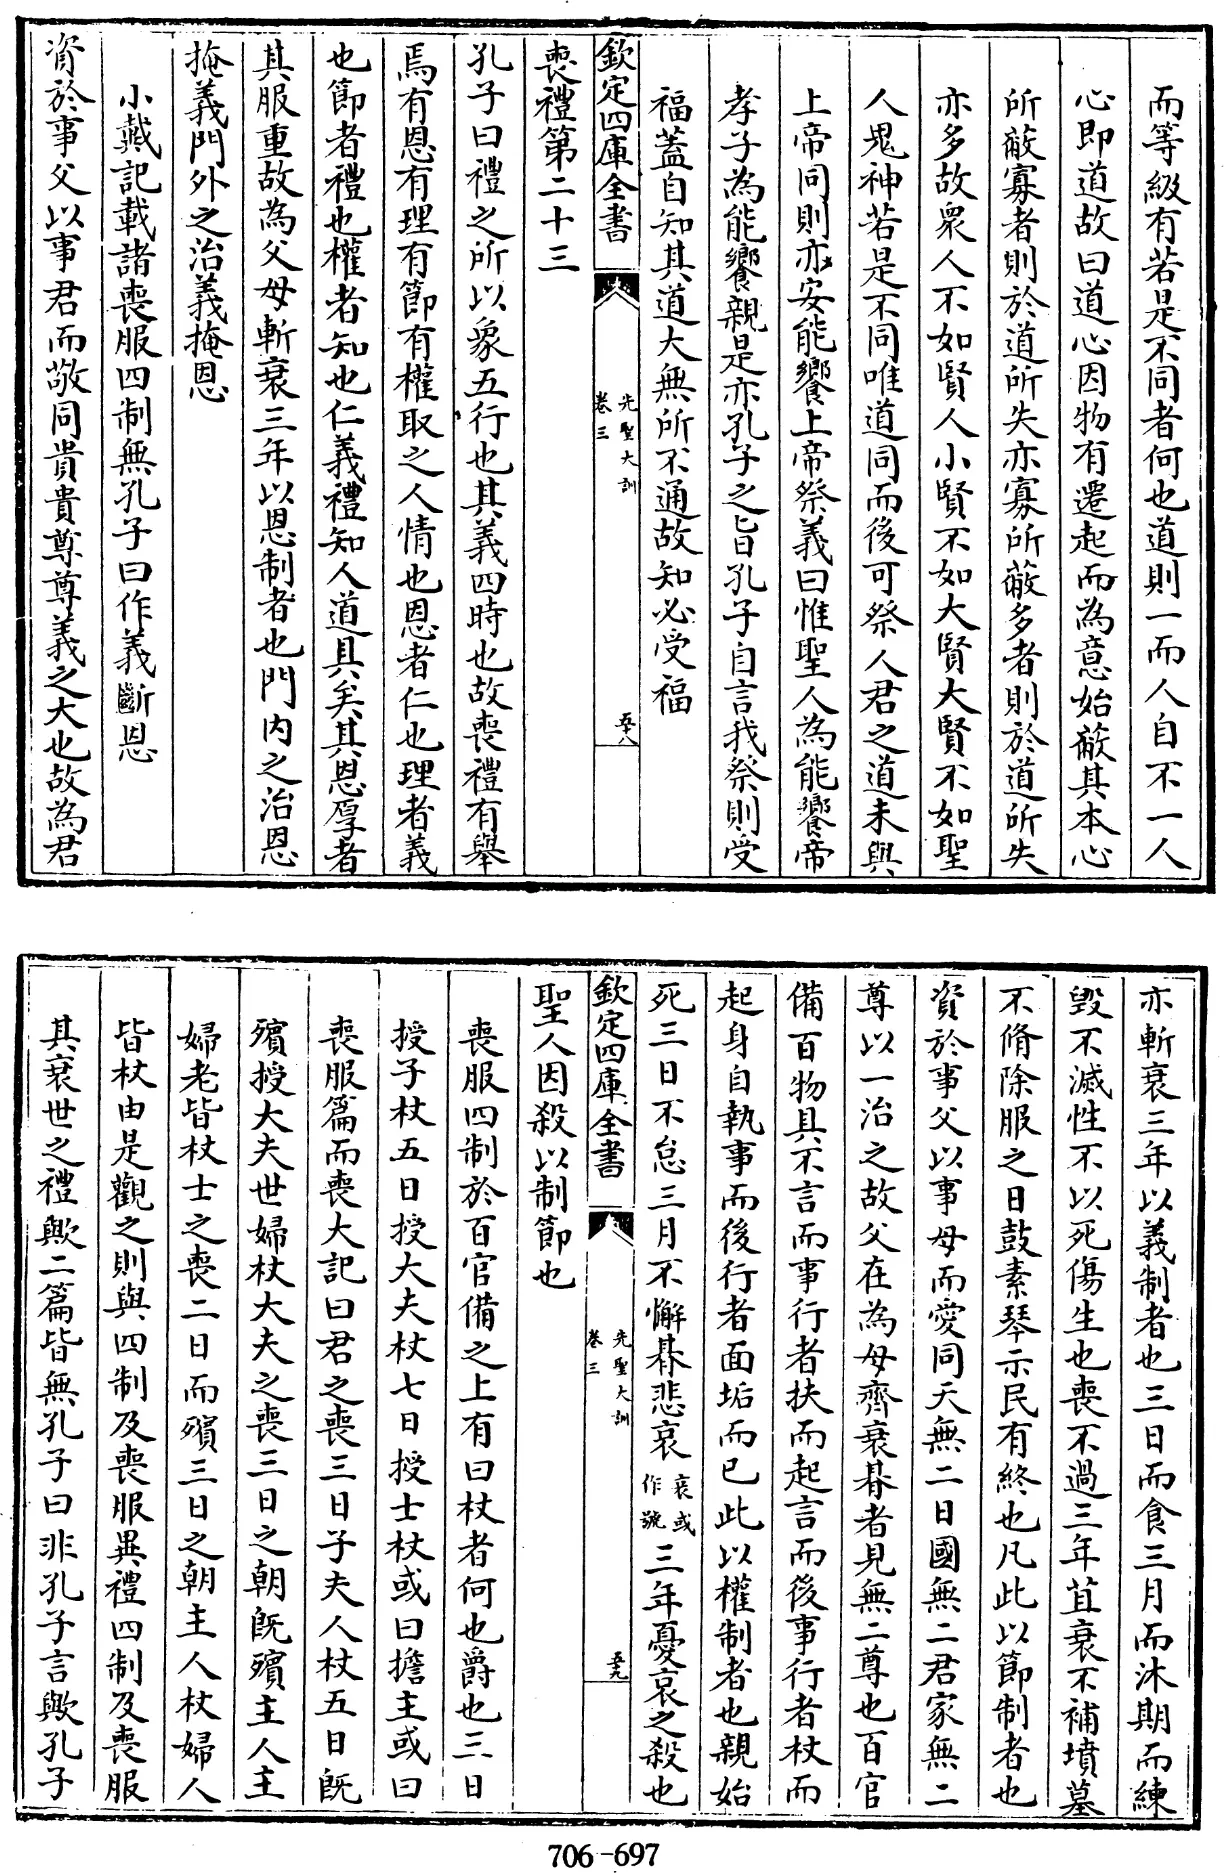 而等級有若是不同者何也道則一而人自不一人
心即道故曰道心因物有遷起而為意始蔽其本心
所蔽寡者則於道所失亦寡所蔽多者則於道所失
亦多故衆人不如賢人小賢不如大賢大賢不如聖
人鬼神若是不同唯道同而後可祭人君之道未與
上帝同則亦安能饗上帝祭義曰惟聖人為能饗帝
孝子為能饗親是亦孔子之旨孔子自言我祭則受
福蓋自知其道大無所不通故知必受福
欽定四庫全書
先聖大訓
卷三
五十八
喪禮第二十三
孔子曰禮之所以象五行也其義四時也故喪禮有舉
焉有恩有理有節有權取之人情也恩者仁也理者義
也節者禮也權者知也仁義禮知人道具矣其恩厚者
其服重故為父母斬衰三年以恩制者也門内之治恩
掩義門外之治義掩恩
小戴記載諸喪服四制無孔子曰作義斷恩
資於事父以事君而敬同貴貴尊尊義之大也故為君
亦斬衰三年以義制者也三日而食三月而沐期而練
毀不滅性不以死傷生也喪不過三年苴衰不補墳墓
不脩除服之日鼓素琴示民有終也凡此以節制者也
資於事父以事母而愛同天無二日國無二君家無二
尊以一治之故父在為母齊衰朞者見無二尊也百官
備百物具不言而事行者扶而起言而後事行者杖而
起身自執事而後行者面垢而已此以權制者也親始
死三日不怠三月不懈朞悲哀哀或作號三年憂哀之殺也
欽定四庫全書
先聖大訓
卷三
五十九
聖人因殺以制節也
喪服四制於百官備之上有曰杖者何也爵也三日
授子杖五日授大夫杖七日授士杖或曰擔主或曰
喪服篇而喪大記曰君之喪三日子夫人杖五日既
殯授大夫世婦杖大夫之喪三日之朝既殯主人主
婦老皆杖士之喪二日而殯三日之朝主人杖婦人
皆杖由是觀之則與四制及喪服異禮四制及喪服
其衰世之禮歟二篇皆無孔子曰非孔子言歟孔子
706-697